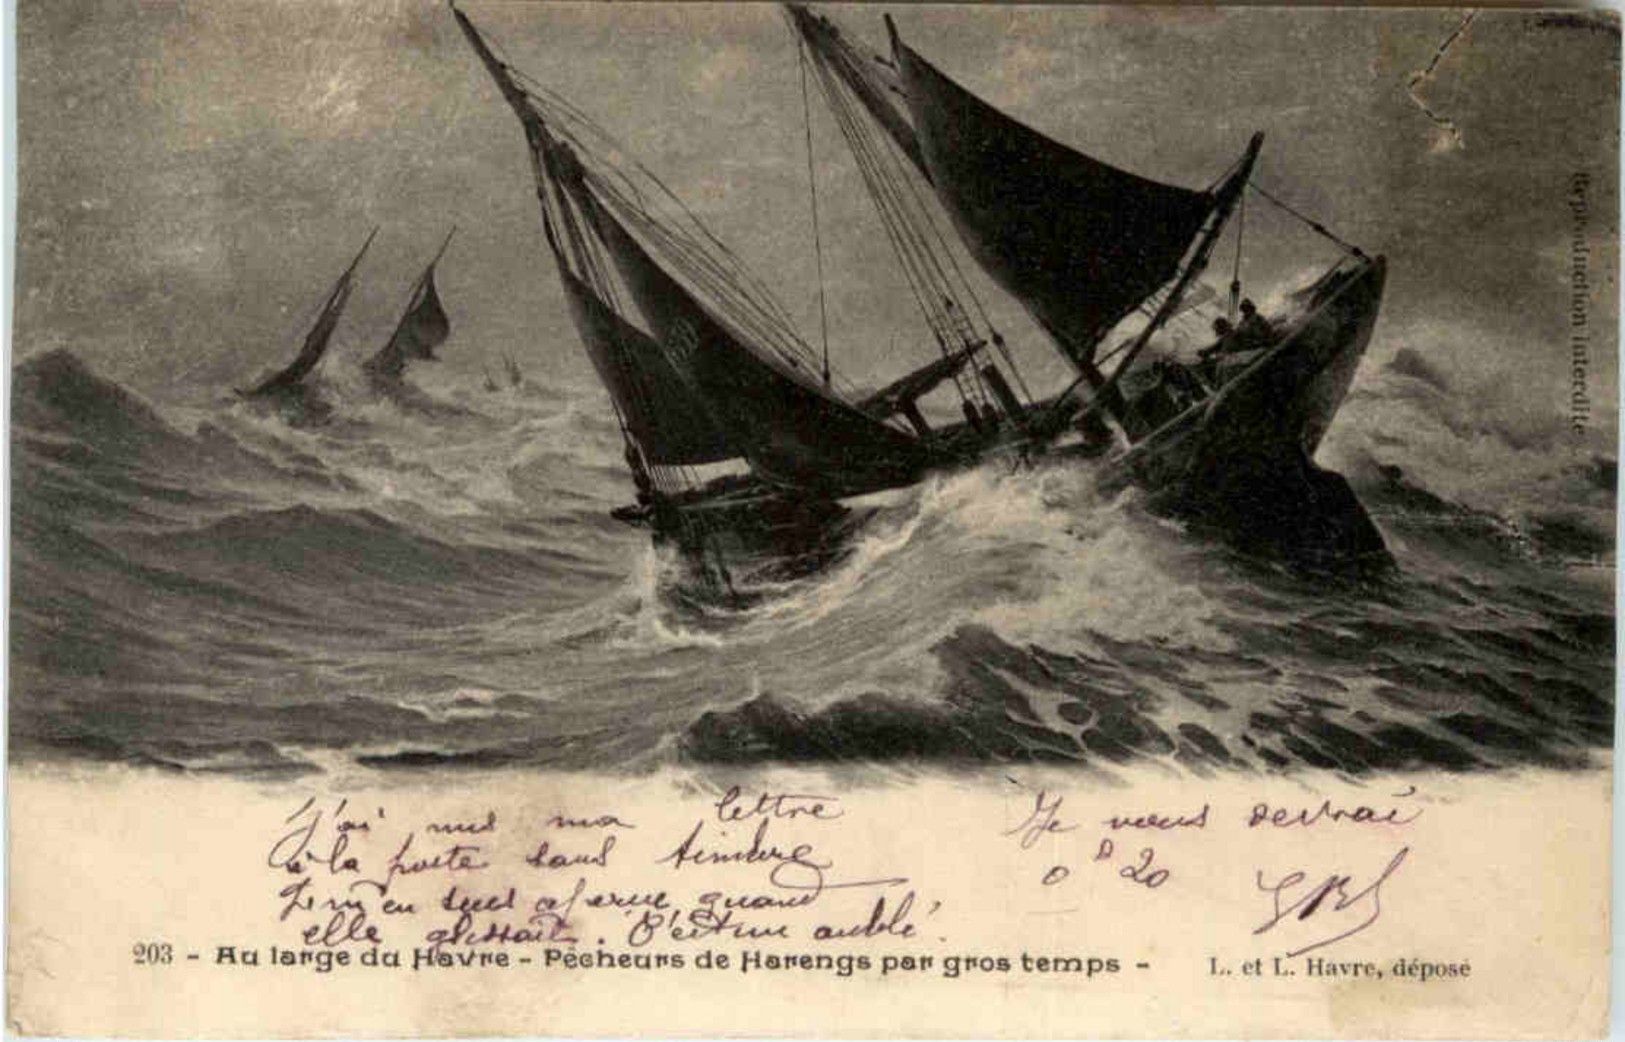 Reproduction interdite
J'ai mis ma lettre
à la poste sans timbre
Je m'en suis aperçue quand
elle glissait. C'est un oubli.
Je vous devrai
0 20
203 - Au large du Havre - Pêcheurs de Harengs par gros temps -
L. et L. Havre, déposé